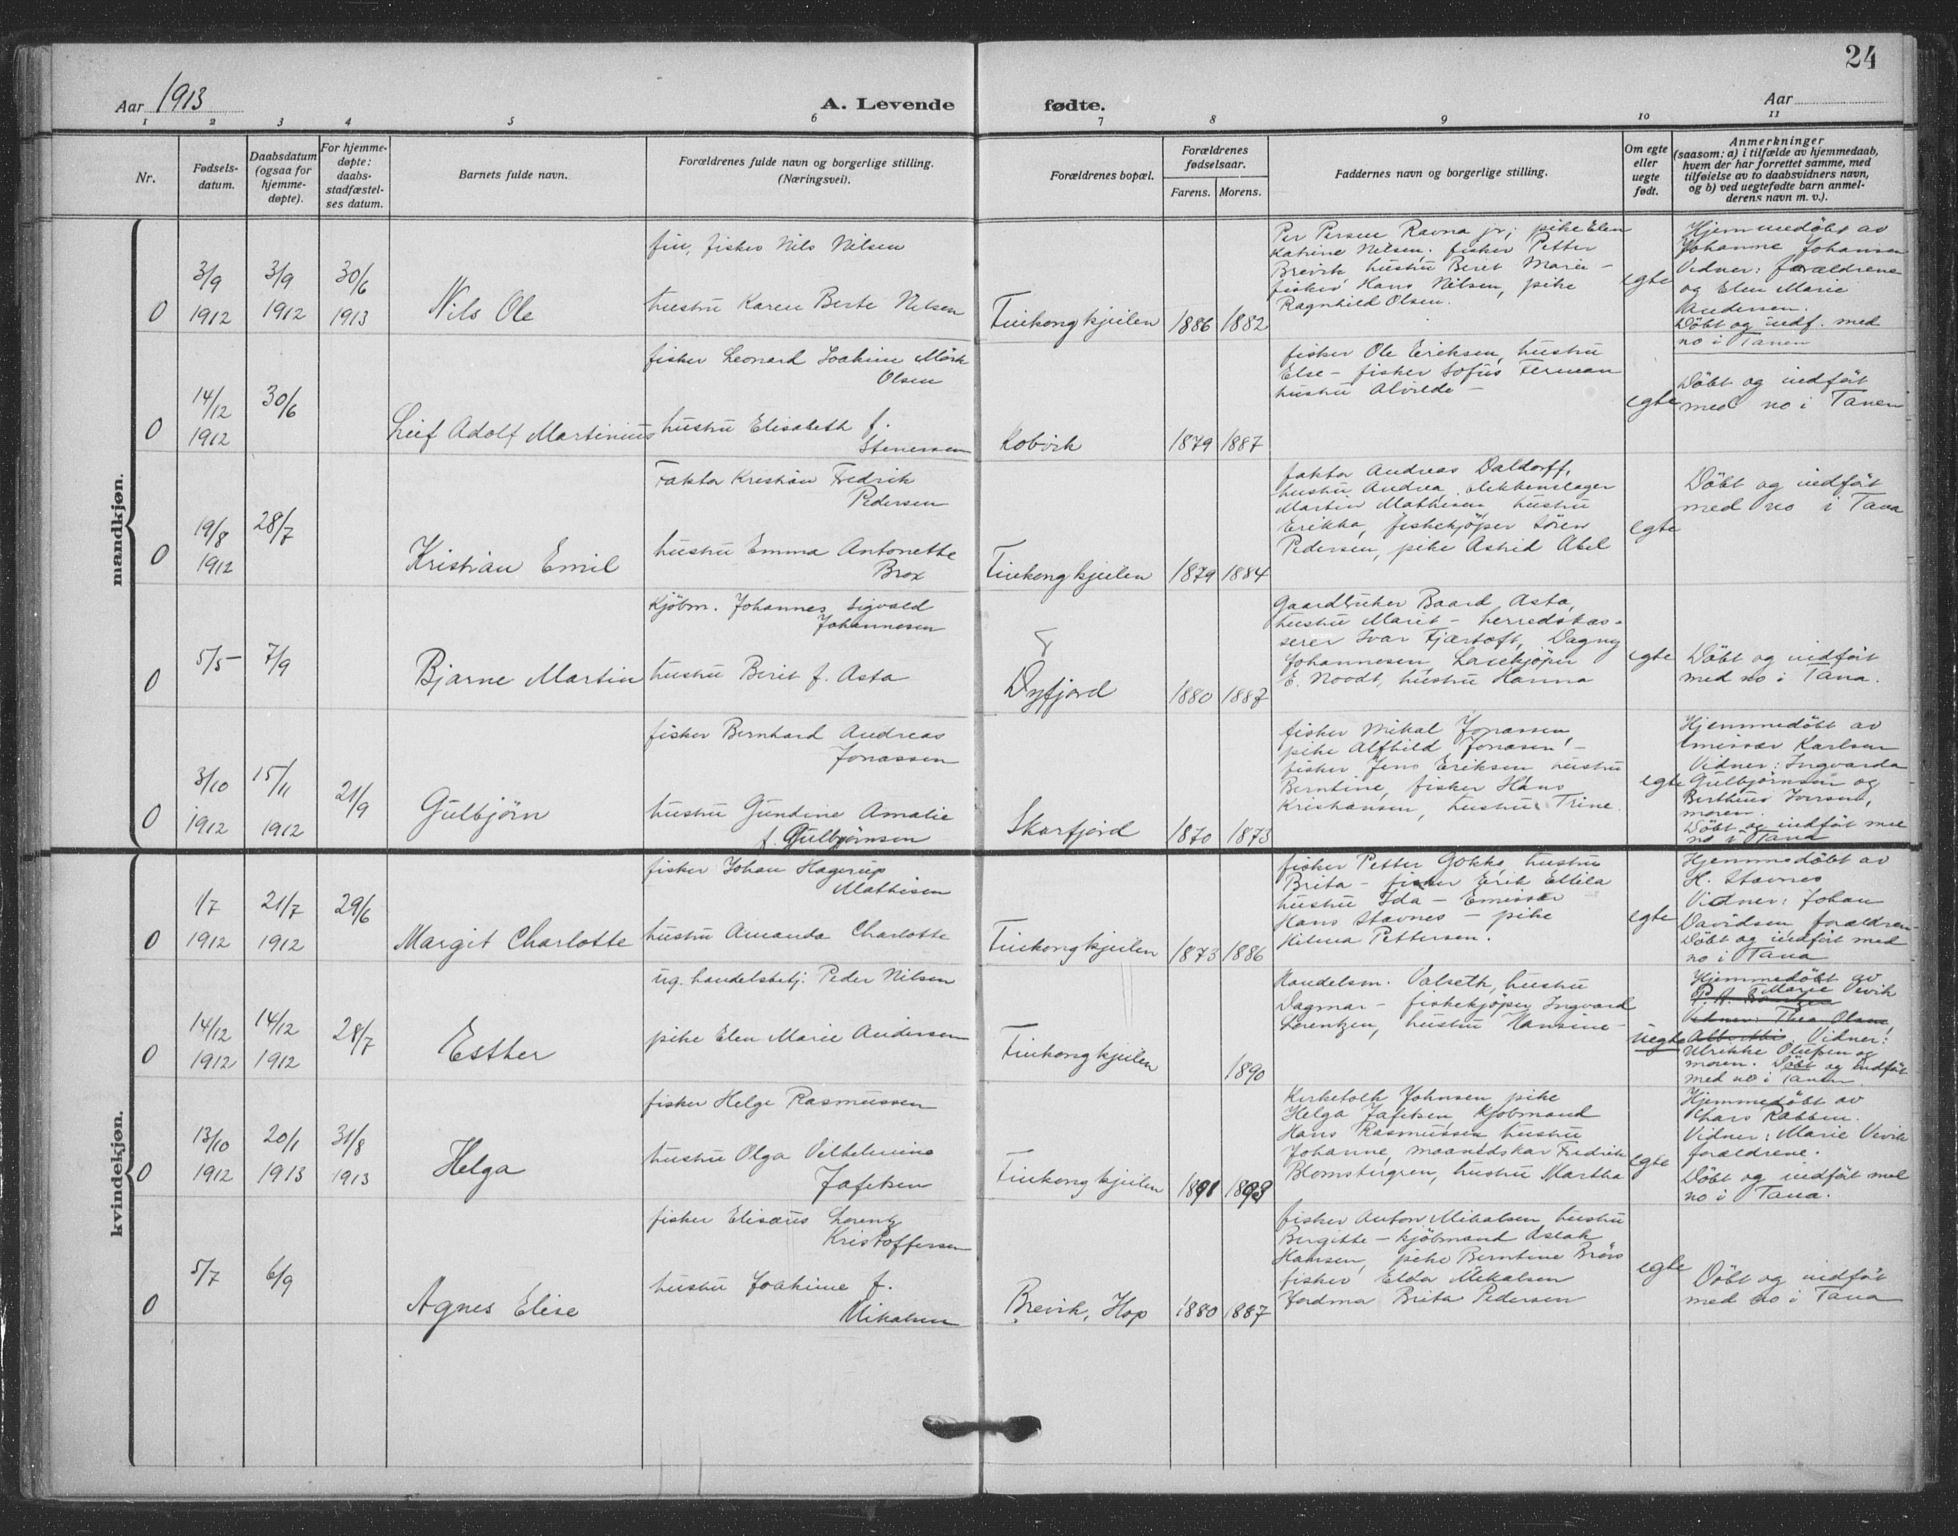 24
Aar 1913
A. Levende fødte.
Aar
1 2 3 4 5 6 7 8 9 10 11
Nr.
Fødsels-
datum.
Daabsdatum
(ogsaa for
hjemme-
døpte).
For hjemme-
døpte:
daabs-
stadfæstel-
ses datum.
Barnets fulde navn.
Forældrenes fulde navn og borgerlige stilling.
(Næringsvei).
Forældrenes bopæl.
Forældrenes
fødselsaar.
Farens. Morens.
Faddernes navn og borgerlige stilling.
Om egte
eller
uegte
født.
Anmerkninger
(saasom: a) i tilfælde av hjemmedaab,
hvem der har forrettet samme, med
tilføielse av to daabsvidners navn,
og b) ved uegtefødte barn anmel-
derens navn m. v.).
mandkjøn.
0
3/9
1912
3/9
1912
30/6
1913
Nils Ole
fin, fisker Nils Nilsen
hustru Karen Berte Nilsen
Finkongkjeilen
1886 1882
Per Persen Ravna jr; pike Elen
Katrine Nilsen, fisker Petter
Brevik hustru Beret Marie -
fisker Hans Nilsen, pike
Ragnhild Olsen.
egte
Hjemmedöbt av
Johanne Johansen
Vidner: forældrene
og Elen Marie
Andersen.
Döbt og indf. med
no i Tanen
0
14/12
1912
30/6
Leif Adolf Martinius
fisker Leonard Joakim Mörk
Olsen
hustru Elisabeth f.
Stenersen
Kobvik
1879 1887
fisker Ole Eriksen, hustru
Else - fisker Sofus Ferman
hustru Alvilde -
egte
Döbt og indfört
med no i Tanen
0
19/8
1912
28/7
Kristian Emil
Faktor Kristian Fredrik
Pedersen
hustru Emma Antonette
Brox
Finkongkjeilen
1879 1884
faktor Andreas Daldorff,
hustru Andrea, blikkenslager
Martin Mathisen, hustru
Erikka, fiskekjöper Sören
Pedersen, pike Astrid Abel
egte
Döbt og indfört
med no i Tana
0
5/5
7/9
Bjarne Martin
Kjöbm. Johannes Sigvald
Johannesen
hustru Berit f. Asta
Dyfjord
1880 1887
Gaardbruker Baard Asta,
hustru Maret - herredskas-
serer Ivar Fjærtoft, Dagny
Johannesen,
E. Noodt, hustru Hanna
egte
Döbt og indfört
med no i Tana.
0
3/10
1912
15/11
1912
21/9
Gulbjørn
fisker Bernhard Andreas
Jonassen
hustru Gundine Amalie
f. Gulbjørnsen
Skarfjord
1870 1873
fisker Mikal Jonassen,
pike Alfhild Jonasen -
fisker Jens Eriksen hustru
Berntine, fisker Hans
Kristiansen, hustru Trine.
egte
Hjemmedöbt av
emissær Karlsen
Vidner: Ingvarda
Gulbjørnsen og
Bertheus Iversen,
moren.
Döbt og indfört med
no i Tana
kvindekjøn.
0
1/7
1912
21/7
1912
29/6
Margit Charlotte
fisker Johan Hagerup
Mathisen
hustru Amanda Charlotte
Finkongkjeilen
1873 1886
fisker Petter Gokko, hustru
Brita - fisker Erik Ettila
hustru Ida - Emissær
Hans Stavnes - pike
Hilma Pettersen.
egte
Hjemmedöbt av
H. Stavnes
Vidner: Johan
Davidsen forældren-
Döbt og indfört med
no i Tana
0
14/12
1912
14/12
1912
28/7
Esther
ug. handelsbetj. Peder Nilsen
pike Elen Marie Andersen
Finkongkjeilen
1890
Handelsm. Valseth, hustru
Dagmar - fiskekjöper Ingvard
Lorentzen, hustru Hansine -
uegte
Hjemmedöbt av
Marie Vevik
Vidner: Thea Olsen
Vidner:
Ulrikke Olufsen og
moren. Döbt og indfört
med no i Tanen
0
13/10
1912
20/1
1913
31/8
1913
Helga
fisker Helge Rasmussen
hustru Olga Vilhelmine
Jafetsen
Finkongkjeilen
1891 1893
Kirketolk Johnsen pike
Helga Jafetsen Kjöbmand
Hans Rasmussen hustru
Johanne, maanedskar Fredrik
Blomstergren, hustru Martha
egte
Hjemmedöbt av
Lars Rabben.
Vidner: Marie Vevik
forældrene.
Döbt og indfört med
no i Tana.
0
5/7
6/9
Agnes Elise
fisker Elisæus Lorentz
Kristoffersen
hustru Joakime f.
Mikalsen
Brevik, Hop
1880 1887
fisker Anton Mikalsen hustru
Bergitte - kjöbmand Aslak
Hansen, pike Berntine Brøs
fisker Elda Mikalsen
Jordma Brita Pedersen
egte
Döbt og indfört
med no i Tana